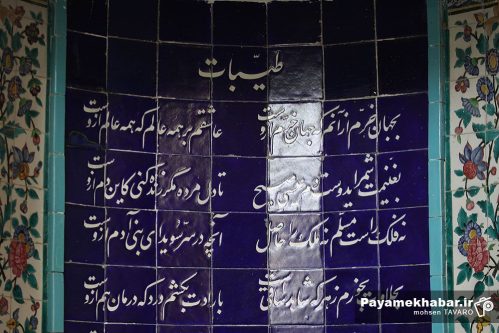 طیّبات
بجهان خرّم ازآنم که جهان خرّم ازوست عاشقم بر همه عالم که همه عالم ازوست
بغنیمت شمر ایدوست دم عیسی صبح تا دل مرده مگر زنده کنی کاین دم ازوست
نه فلک راست مسلّم نه ملک را حاصل آنچه در سرّ سویدای بنی آدم ازوست
بحلاوت بخورم زهر که شاهد ساقیست بارادت بکشم درد که درمان هم ازوست
Payamekhabar.ir
mohsen TAVARO